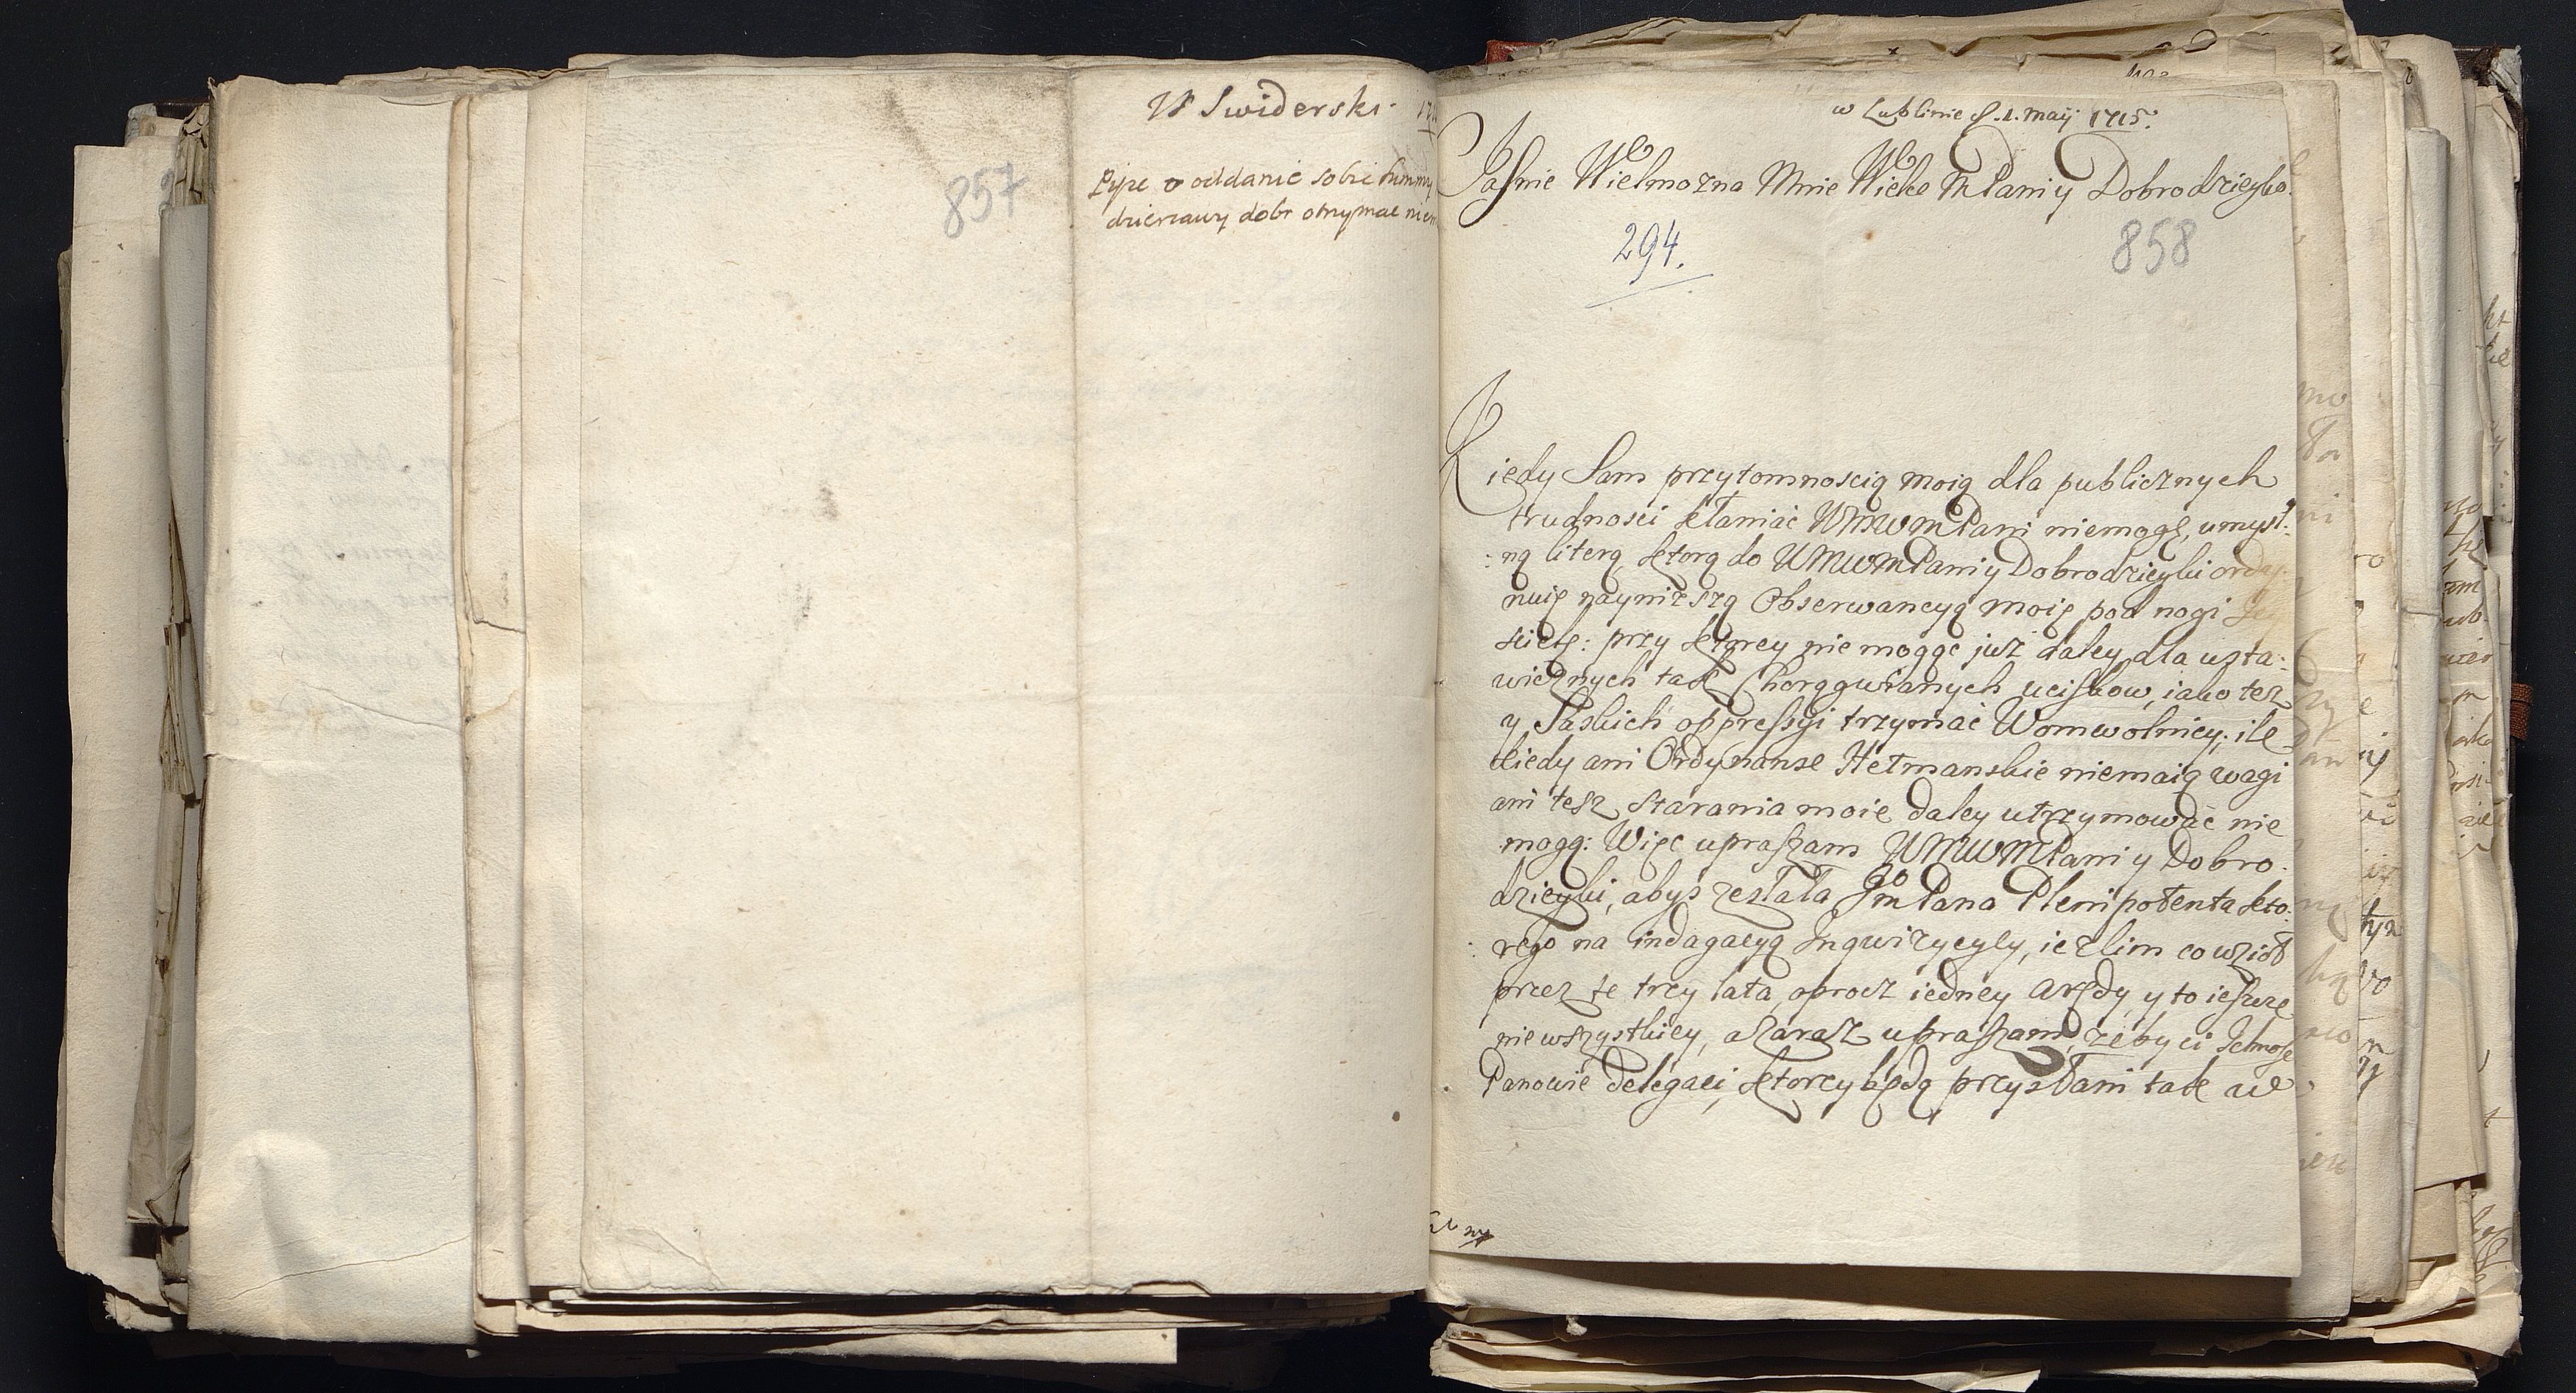 W Swiderski
Pisze o oddanie sobie summy
dzierzawy dobr otrzymac
857
w Lublinie d. 1. Maij 1715.
Jasnie Wielmozna Mnie Wielce MPani y Dobrodzieyko.
294.
858
Kiedy Sam przytomnoscią moią dla publicznych
trudnosci kłaniać WMWMPani niemogę, umysl:
:ną literą, ktorą do WMWMPani y Dobrodzieyki ordy:
nuię naynizszą Obserwancyą moię pod nogi
sciele: przy ktorey nie mogąc już daley dla usta:
wicznych tak Chorągwianych uciskow, iako tez
y Saskich oppressyi trzymać Womwolnicy, ile
kiedy ani Ordynanse Hetmanskie niemaią wagi
ani tesz starania moie daley utrzymować nie
mogą: Więc upraszam WMWMPani y Dobro:
dzieyki, abyś zesłała Jmci Pana Plenipotenta kto:
:rego na indagacyą Inqwizycyey, iezlim co wziół
przez te trzy lata, oprocz iedney Arędy, y to ieszcze
nie wszystkiey, a zarasz upraszam, zeby ci Ichmość
Panowie delegaci, ktorzy będą przysłani tak we